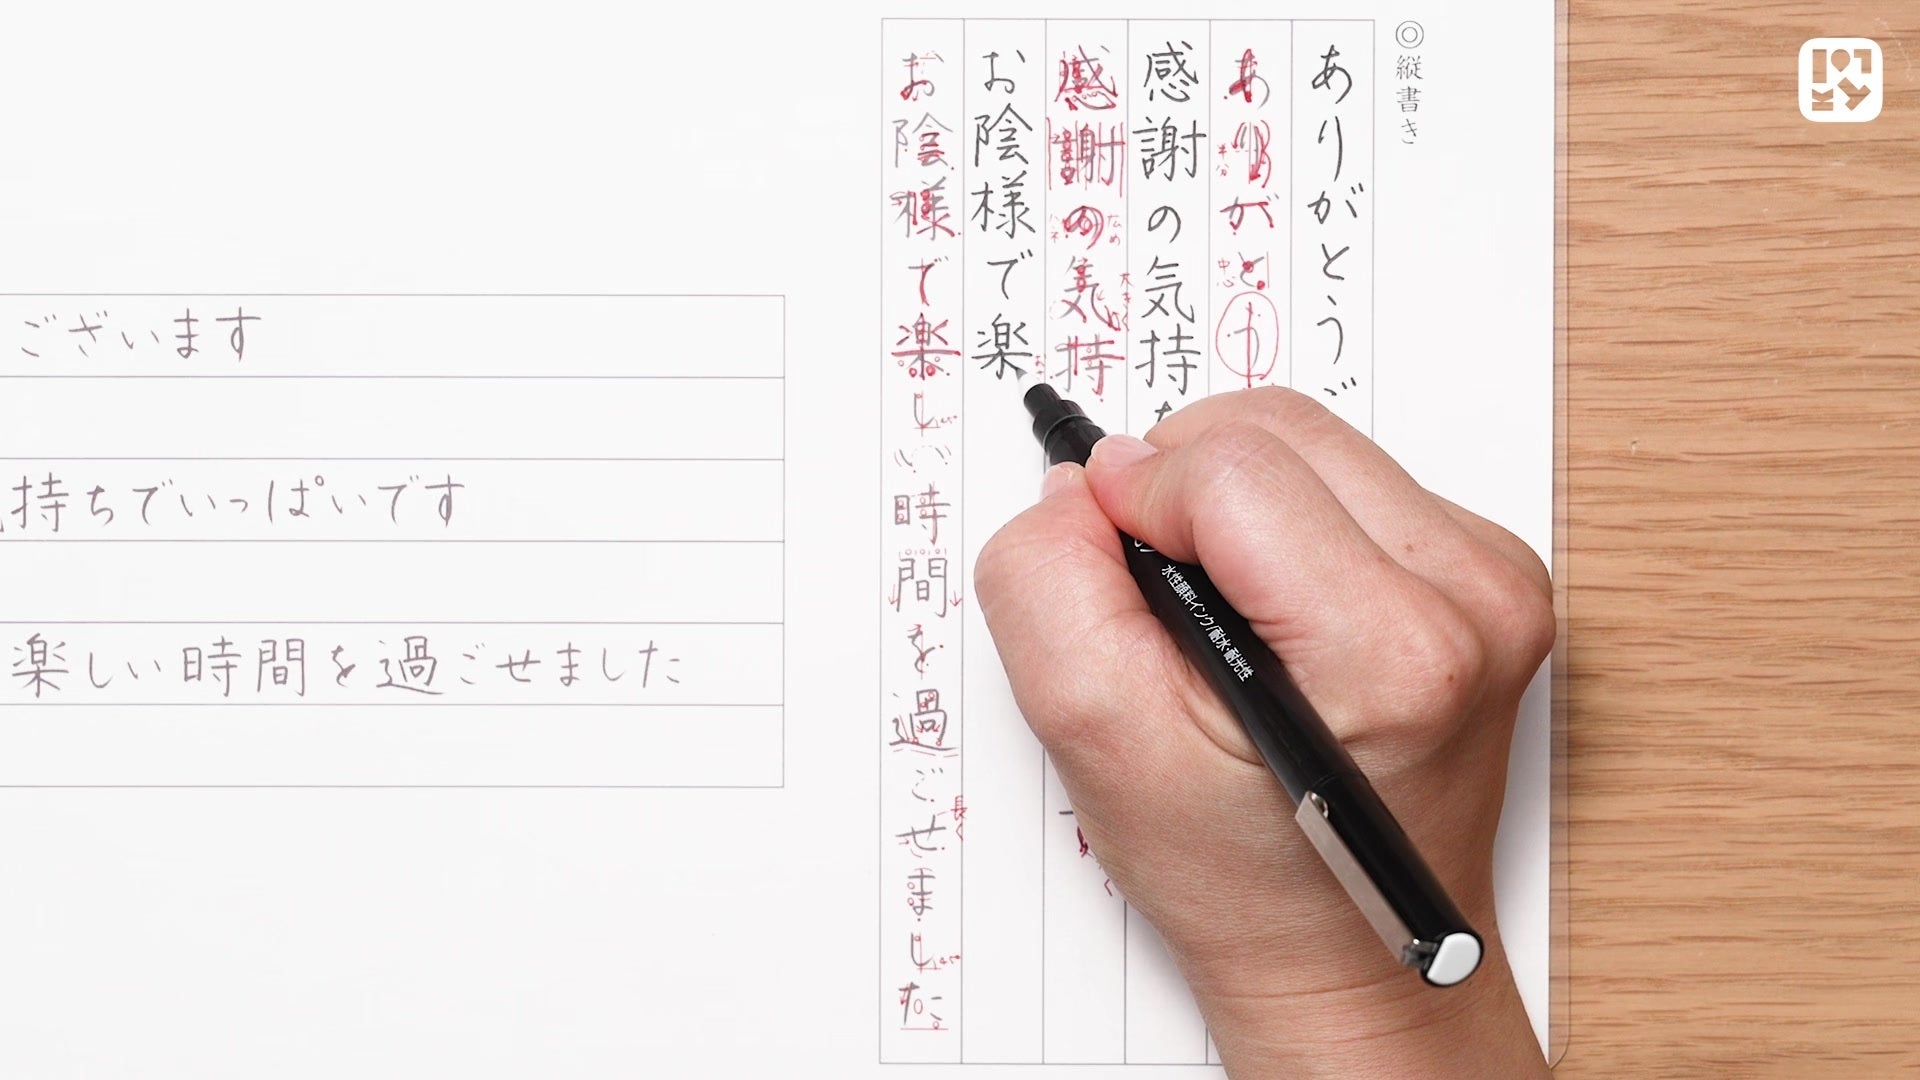 ◎縦書き
ありがとうご
ありがとう
半分
中心
感謝の気持ち
感謝の気持
ハネ
ため
大きく
お陰様で楽
お陰様で楽しい時間を過ごせました
長く
45°
ございます
持ちでいっぱいです
楽しい時間を過ごせました
水性顔料インク/耐水・耐光性
LOKAY